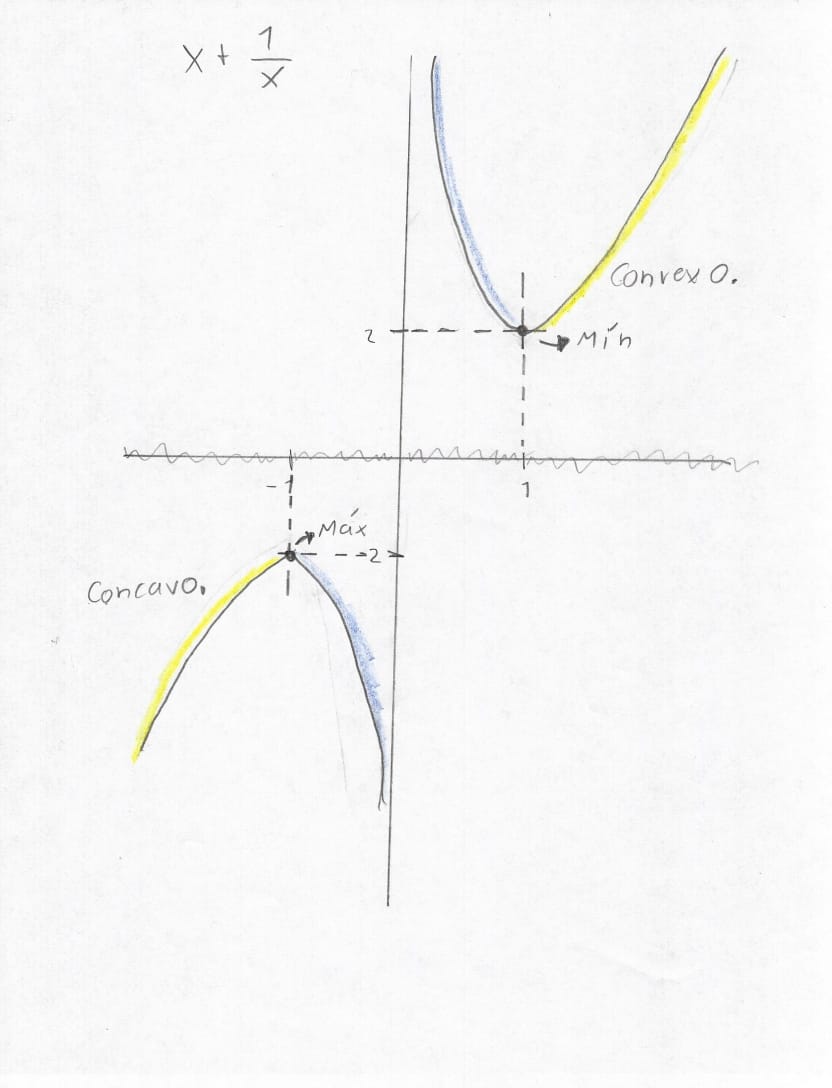 x + 1/x
Convexo.
2
Mín
-1
1
Máx
-2
Concavo.